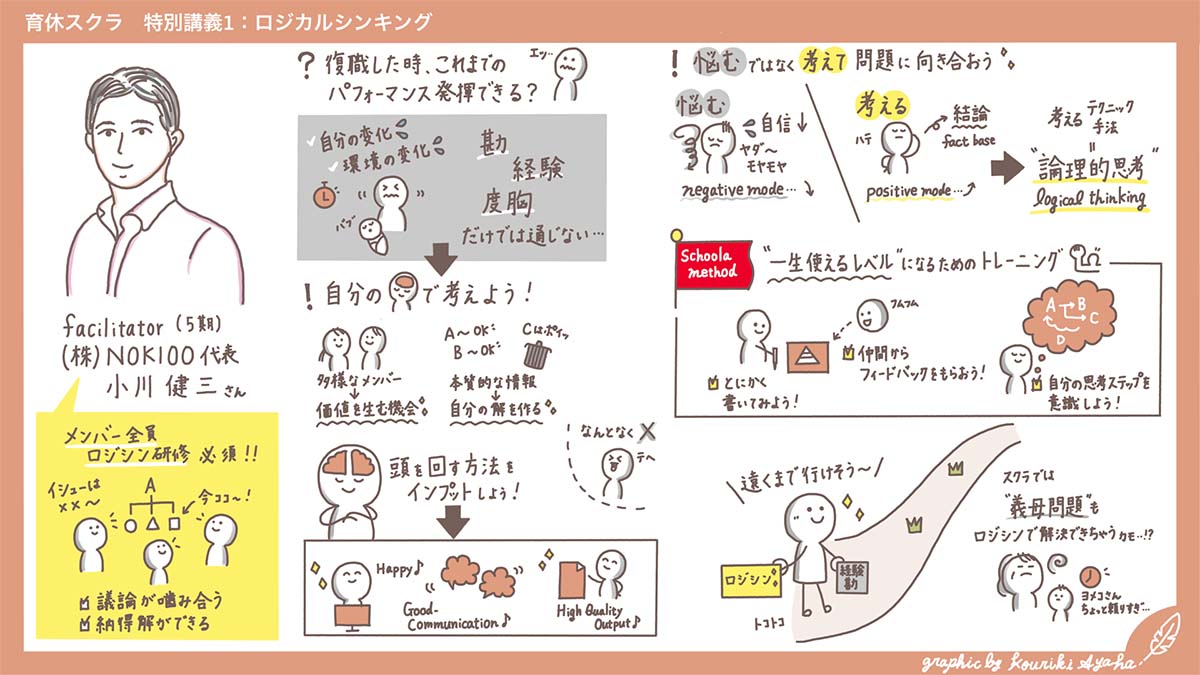 育休スクラ 特別講義1：ロジカルシンキング
facilitator (5期)
(株) NOKIOO 代表
小川 健三 さん
メンバー全員
ロジシン研修 必須!!
イシューは
××〜
A
今ココ〜!
議論が噛み合う
納得解ができる
? 復職した時、これまでの
パフォーマンス発揮できる?
エッ…
自分の変化
環境の変化
バブ
勘
経験
度胸
だけでは通じない…
! 自分の で考えよう!
多様なメンバー
価値を生む機会
A〜OK
B〜OK
Cはポイッ
本質的な情報
自分の解を作る
なんとなく ×
テヘ
頭を回す方法を
インプットしよう!
Happy♪
Good-
Communication♪
High Quality
Output♪
! 悩むではなく 考えて 問題に向き合おう
悩む
自信↓
ヤダ〜
モヤモヤ
negative mode…
考える
ハテ
結論
fact base
positive mode…
考える テクニック
手法
=
"論理的思考"
logical thinking
Schoola
method
"一生使えるレベル"になるためのトレーニング
とにかく
書いてみよう!
フムフム
仲間から
フィードバックをもらおう!
A B
C
D
自分の思考ステップを
意識しよう!
\遠くまで行けそう〜/
ロジシン
経験
勘
トコトコ
スクラでは
"義母問題"も
ロジシンで解決できちゃうカモ…!?
ヨメコさん
ちょっと頼りすぎ…
graphic by Kouriki Ayaha.